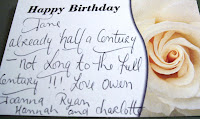 Happy Birthday
Jane
already half a Century
- not long to the full
Century !!! Love Owen
Joanna Ryan
Hannah and charlotte